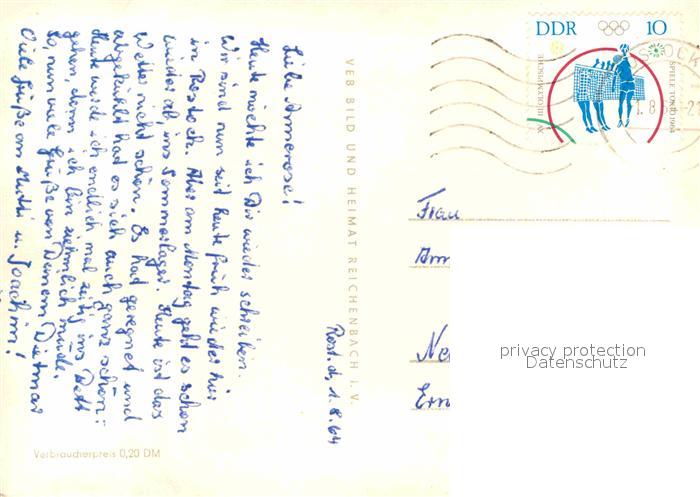 Rost. d. 1.8.64
Liebe Annerose!
Heute möchte ich Dir wieder schreiben.
Wir sind nun seit heute früh wieder hier
in Rostock. Aber am Montag geht es schon
wieder ab ins Sommerlager. Heute ist das
Wetter nicht schön. Es hat geregnet und
abgekühlt hat es sich auch ganz schön.
Heute werde ich endlich mal zeitig ins Bett
gehen, denn ich bin ziemlich müde.
So, nun viele Grüße von Deinem Dietmar
Viele Grüße an Mutti u. Joachim!
VEB BILD UND HEIMAT REICHENBACH i. V.
Verbraucherpreis 0,20 DM
DDR 10
XVIII. OLYMPISCHE
SPIELE TOKIO 1964
Frau
Ann
Ne
Ern
privacy protection
Datenschutz